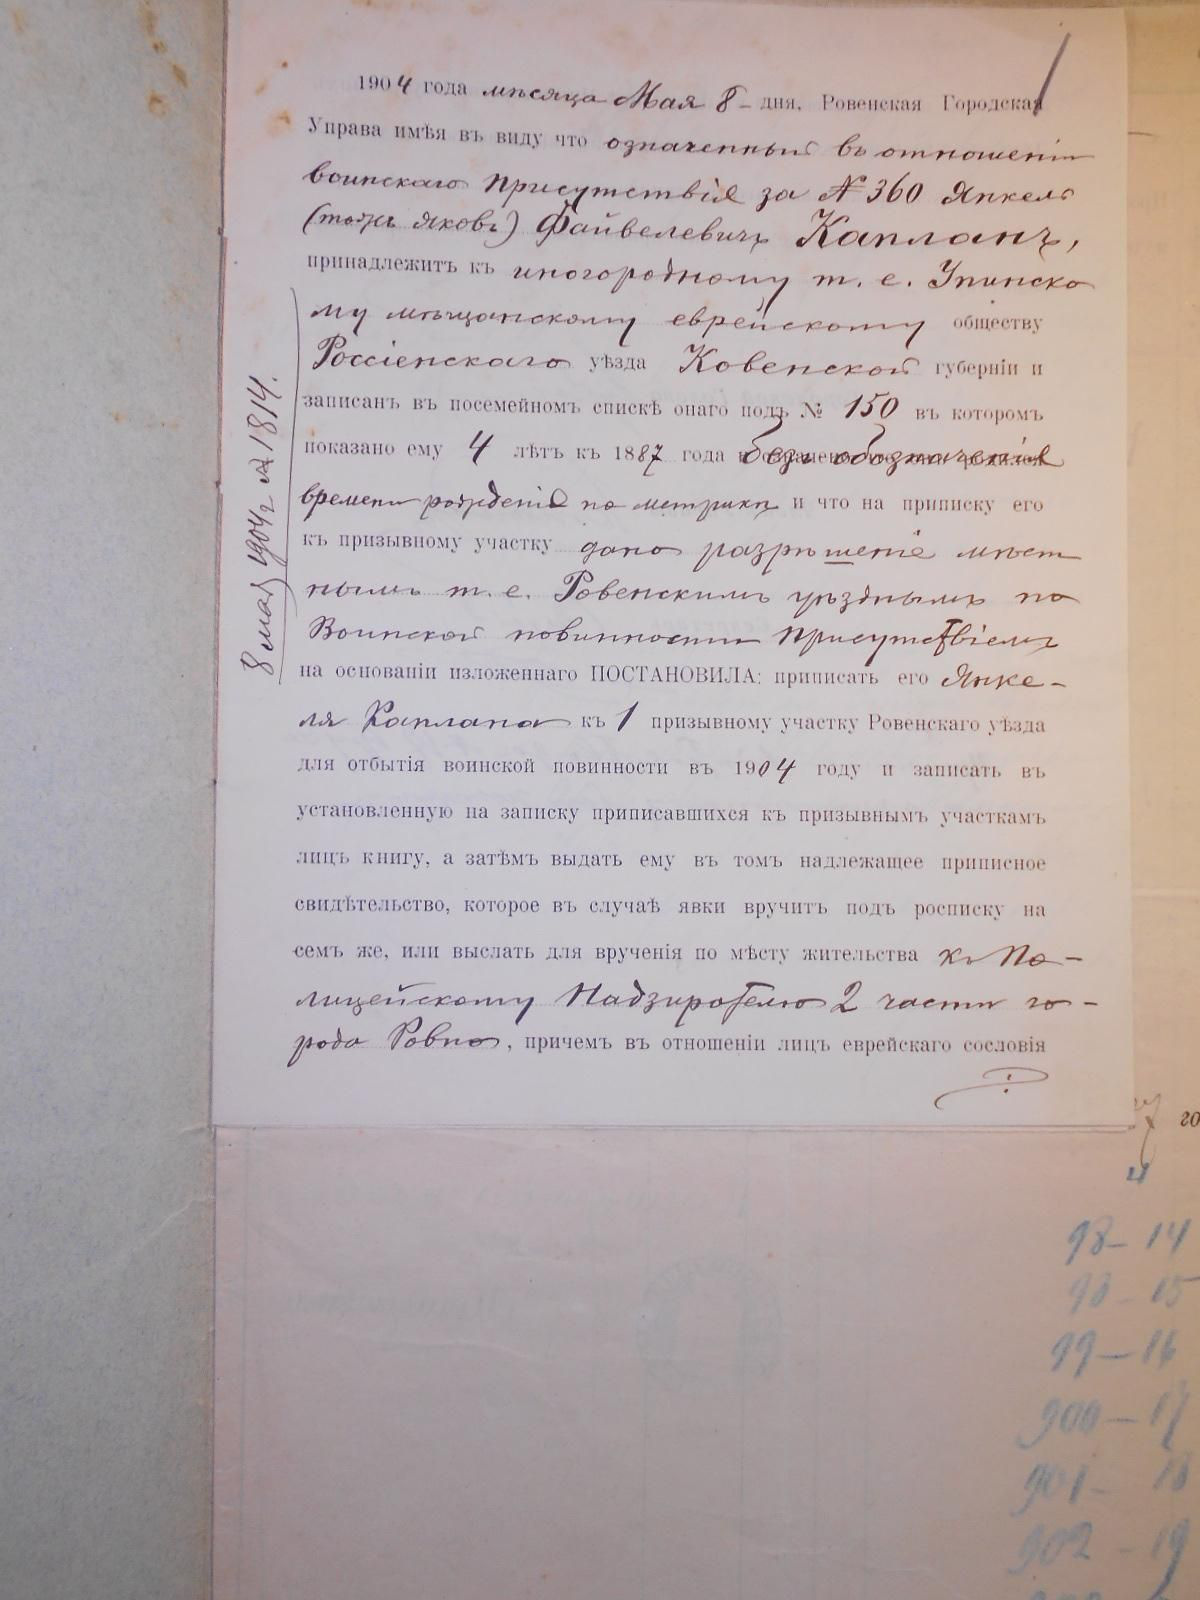 1904 года мѣсяца Мая 8 - дня, Ровенская Городская
Управа имѣя въ виду что означенный въ отношеніи
воинскаго Присутствія за № 360 Янкель
(тожъ Яковъ) Файвелевичъ Капланъ,
принадлежитъ къ иногородному т. е. Упинско
му мѣщанскому еврейскому обществу
Россіенскаго уѣзда Ковенской губерніи и
записанъ въ посемейномъ спискѣ онаго подъ № 150 въ которомъ
показано ему 4 лѣтъ къ 1887 года безъ обозначенія
времени рожденія по метрикѣ и что на приписку его
къ призывному участку дано разрѣшеніе мѣст
нымъ т. е. Ровенскимъ уѣзднымъ по
Воинской повинности Присутствіемъ
на основаніи изложеннаго ПОСТАНОВИЛА: приписать его Янке-
ля Каплана къ 1 призывному участку Ровенскаго уѣзда
для отбытія воинской повинности въ 1904 году и записать въ
установленную на записку приписавшихся къ призывнымъ участкамъ
лицъ книгу, а затѣмъ выдать ему въ томъ надлежащее приписное
свидѣтельство, которое въ случаѣ явки вручить подъ росписку на
семъ же, или выслать для врученія по мѣсту жительства къ По-
лицейскому Надзирателю 2 части го-
рода Ровно, причемъ въ отношеніи лицъ еврейскаго сословія
8 мая 1904 г № 1814.
го
98 - 14
98 - 15
99 - 16
900 - 17
901 - 18
902 - 19